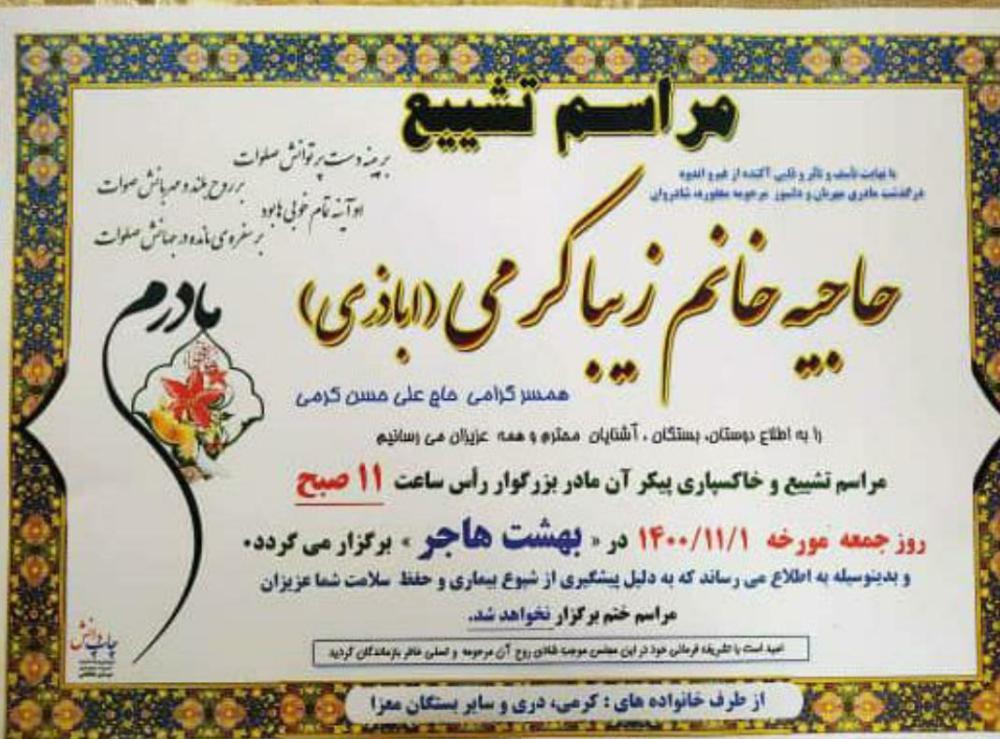 مراسم تشییع
بر پینه دست پر توانش صلوات
بر روح بلند و مهربانش صلوات
او آینه تمام خوبی ها بود
بر سفره ی مانده در جهانش صلوات
مادرم
با نهایت تأسف و تأثر و قلبی آکنده از غم و اندوه
درگذشت مادری مهربان و دلسوز مرحومه مغفوره شادروان
حاجیه خانم زیبا کرمی (اباذری)
همسر گرامی حاج علی حسن کرمی
را به اطلاع دوستان، بستگان، آشنایان محترم و همه عزیزان می رسانیم
مراسم تشییع و خاکسپاری پیکر آن مادر بزرگوار رأس ساعت ۱۱ صبح
روز جمعه مورخه ۱۴۰۰/۱۱/۱ در « بهشت هاجر » برگزار می گردد.
و بدینوسیله به اطلاع می رساند که به دلیل پیشگیری از شیوع بیماری و حفظ سلامت شما عزیزان
مراسم ختم برگزار نخواهد شد.
امید است با تشریف فرمائی خود در این مجلس موجب شادی روح آن مرحومه و تسلی خاطر بازماندگان گردید
از طرف خانواده های : کرمی، دری و سایر بستگان معزا
چاپ دانش